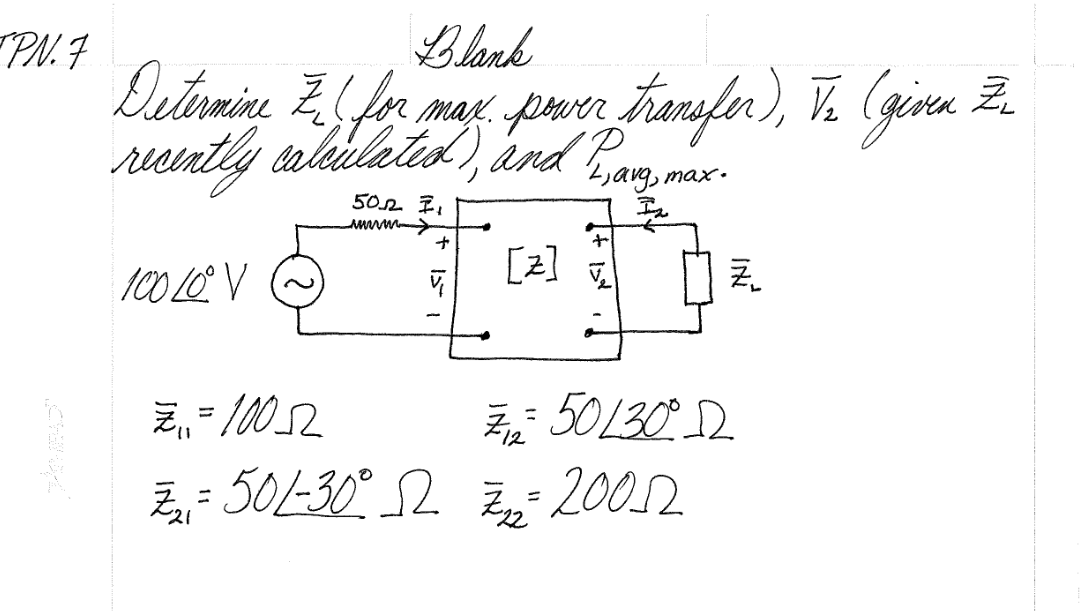 TPN. 7
Blank
Determine Z̄L (for max. power transfer), V̄2 (given Z̄L
recently calculated), and PL,avg,max.
50Ω Ī1 Ī2
+ +
100∠0° V V̄1 [z] V̄2 Z̄L
- -
Z̄11 = 100Ω Z̄12 = 50∠30° Ω
Z̄21 = 50∠-30° Ω Z̄22 = 200Ω